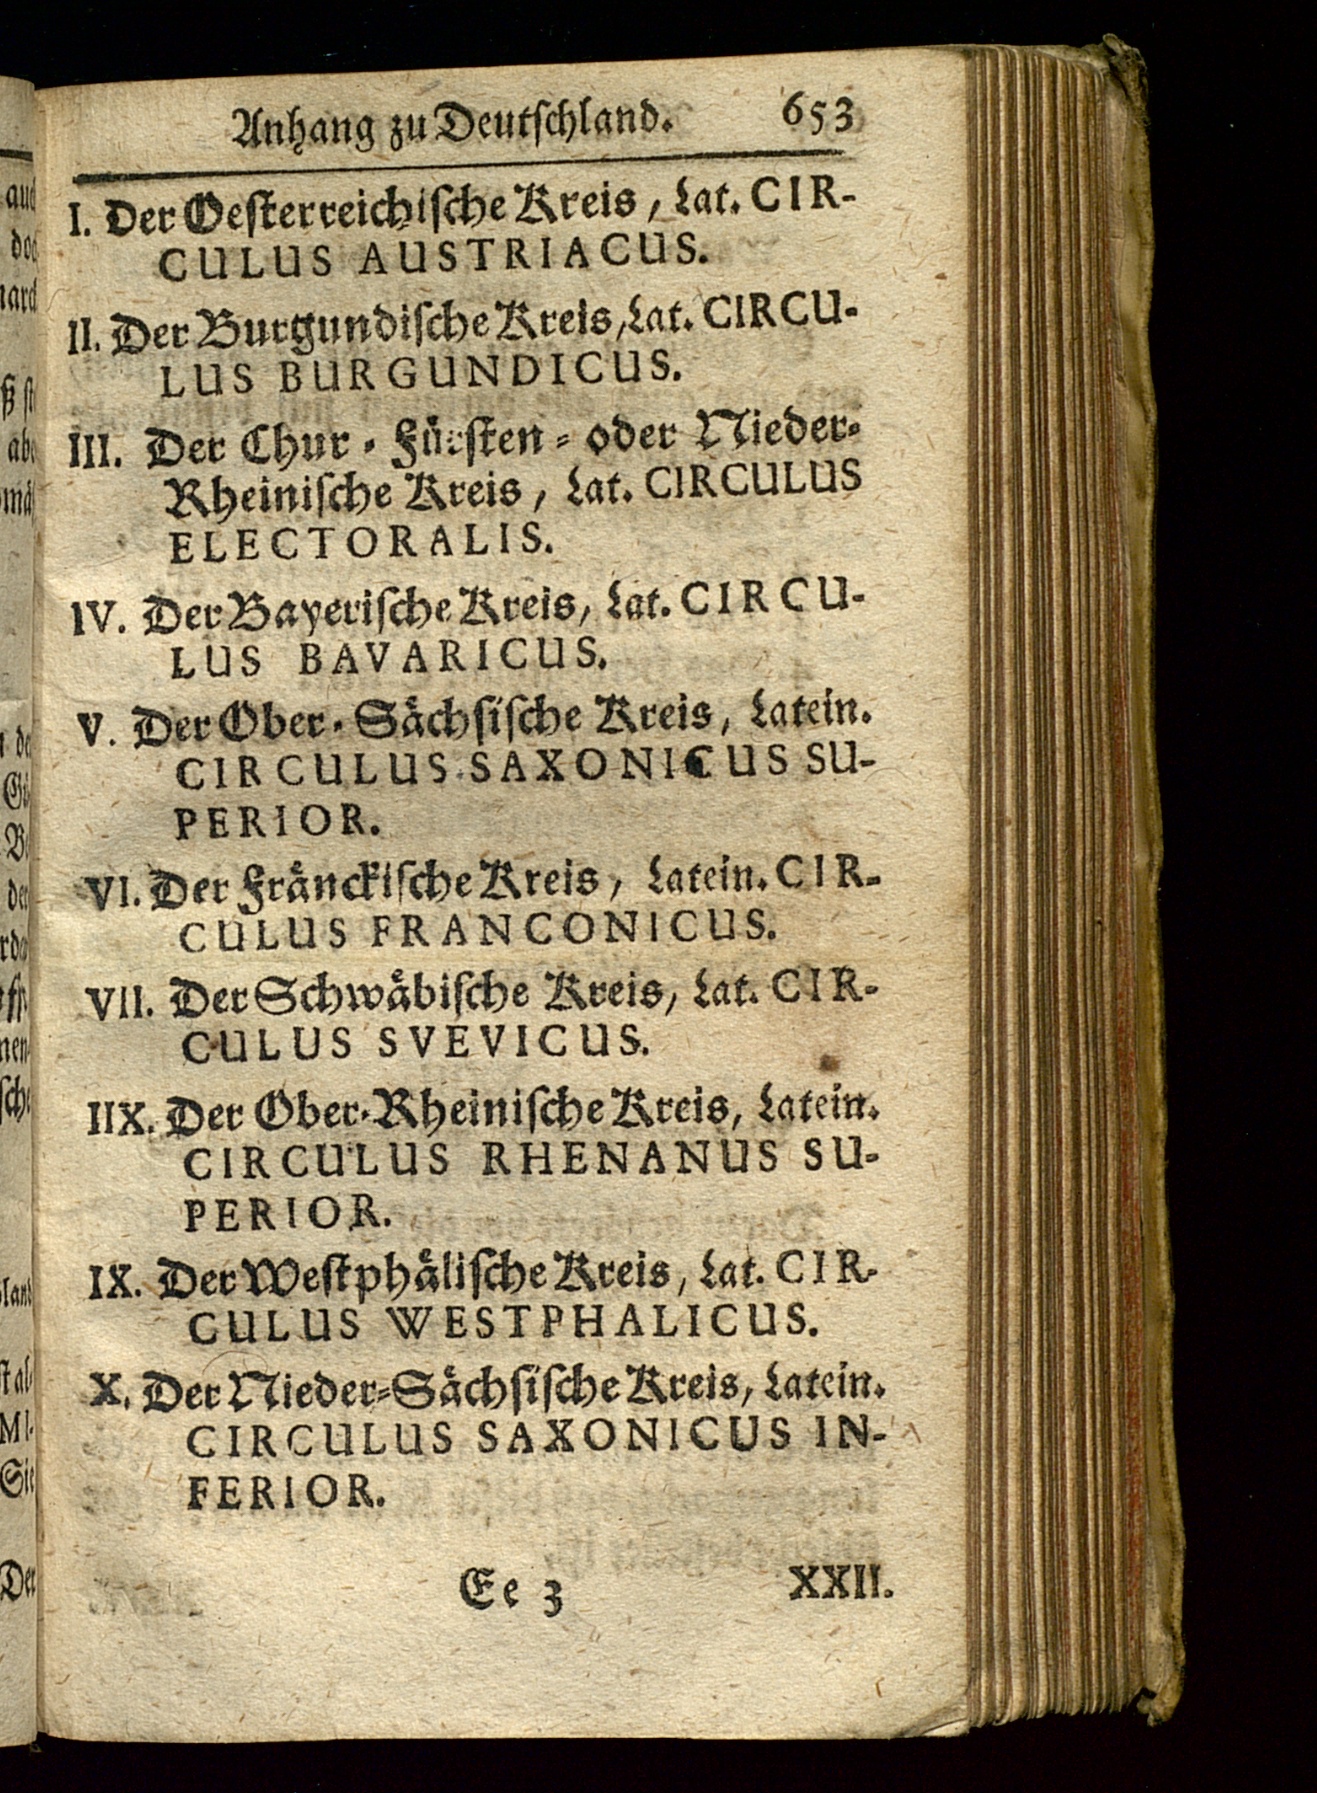 Anhang zu Deutschland. 653
I. Der Oesterreichische Kreis, Lat. CIR-
CULUS AUSTRIACUS.
II. Der Burgundische Kreis, Lat. CIRCU-
LUS BURGUNDICUS.
III. Der Chur-Fürsten- oder Nieder-
Rheinische Kreis, Lat. CIRCULUS
ELECTORALIS.
IV. Der Bayerische Kreis, Lat. CIRCU-
LUS BAVARICUS.
V. Der Ober-Sächsische Kreis, Latein.
CIRCULUS SAXONICUS SU-
PERIOR.
VI. Der Fränckische Kreis, Latein. CIR-
CULUS FRANCONICUS.
VII. Der Schwäbische Kreis, Lat. CIR-
CULUS SVEVICUS.
IIX. Der Ober-Rheinische Kreis, Latein.
CIRCULUS RHENANUS SU-
PERIOR.
IX. Der Westphälische Kreis, Lat. CIR-
CULUS WESTPHALICUS.
X. Der Nieder-Sächsische Kreis, Latein.
CIRCULUS SAXONICUS IN-
FERIOR.
Ee 3 XXII.